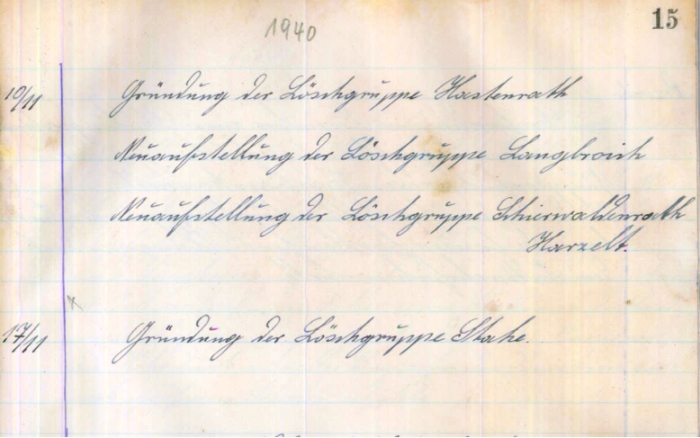 1940
15
10/11 Gründung der Löschgruppe Hastenrath
Neuaufstellung der Löschgruppe Langbroich
Neuaufstellung der Löschgruppe Schierwaldenrath
Harzelt.
17/11 Gründung der Löschgruppe Stahe.